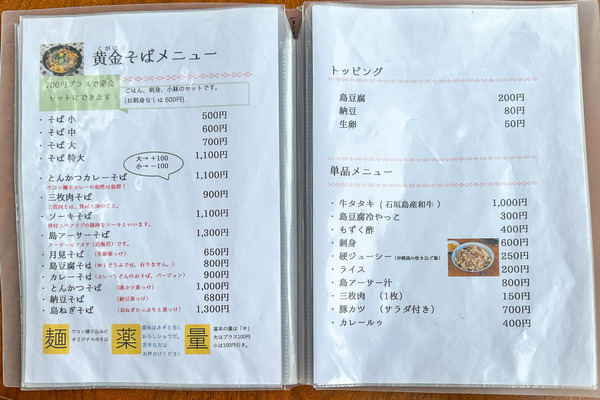 くがに
黄金そばメニュー
700円プラスで定食
セットにできます
ごはん、刺身、小鉢のセットです。
(お刺身なしは 600円)
・そば 小 500円
・そば 中 600円
・そば 大 700円
・そば 特大 1,100円
大→ +100
小→ −100
・とんかつカレーそば 1,100円
ウコン麺とカレーの相性は抜群!
・三枚肉そば 900円
三枚肉とは、豚ばら肉のこと。
・ソーキそば 1,100円
骨付スペアリブの豚肉をソーキといいます。
・島アーサーそば 1,300円
アーサーはアオサ(岩海苔)です。
・月見そば (生卵乗っけ) 650円
・島豆腐そば (ゆしどうふでは、有りません。) 800円
・カレーそば (カレーうどんのおそば、バージョン) 900円
・とんかつそば (豚カツ乗っけ) 1,000円
・納豆そば (納豆乗っけ) 680円
・島ねぎそば (島ねぎたっぷりと乗っけ) 1,300円
麺
ウコン練り込みの
オリジナルのそば
薬
薬味はネギと生し
おろしショウガ。
苦手な方は
お声かけください
量
基本の量は「中」
大はプラス100円
小は100円引き。
トッピング
島豆腐 200円
納豆 80円
生卵 50円
単品メニュー
・牛タタキ (石垣島産和牛) 1,000円
・島豆腐冷やっこ 300円
・もずく酢 400円
・刺身 600円
・硬ジューシー (沖縄風の炊き込ご飯) 250円
・ライス 200円
・島アーサー汁 800円
・三枚肉 (1枚) 150円
・豚カツ (サラダ付き) 700円
・カレールゥ 400円